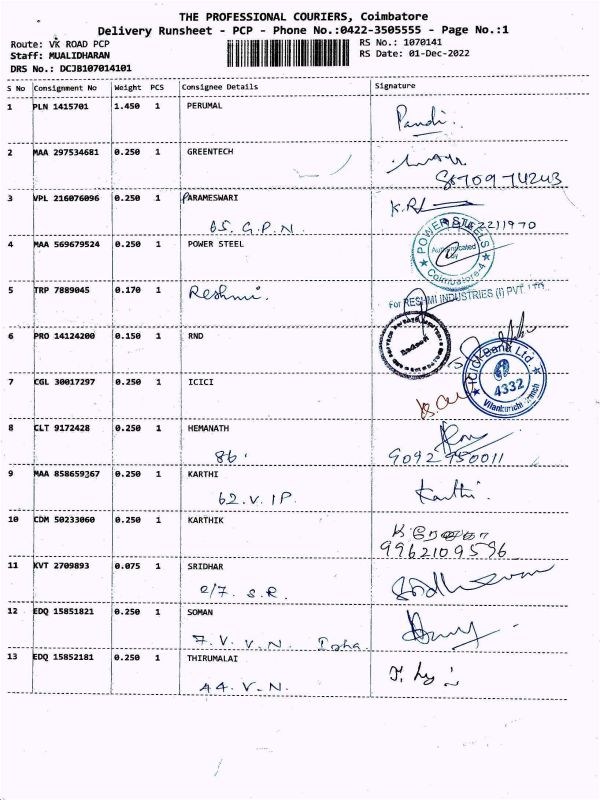 THE PROFESSIONAL COURIERS, Coimbatore
Delivery Runsheet - PCP - Phone No.:0422-3505555 - Page No.:1
Route: VK ROAD PCP RS No.: 1070141
Staff: MUALIDHARAN RS Date: 01-Dec-2022
DRS No.: DCJB107014101
S No Consignment No Weight PCS Consignee Details Signature
1 PLN 1415701 1.450 1 PERUMAL
Pandi.
2 MAA 297534681 0.250 1 GREENTECH
8670974243
3 VPL 216076096 0.250 1 PARAMESWARI
65. G.P.N. 2211970
4 MAA 569679524 0.250 1 POWER STEEL
POWER STEELS
Authenticated
By
Coimbatore-4
5 TRP 7889045 0.170 1 Reshmi.
For RESHMI INDUSTRIES (I) PVT LTD
6 PRO 14124200 0.150 1 RND
7 CGL 30017297 0.250 1 ICICI
ICICI Bank Ltd.
4332
Vilankurichi Branch
8 CLT 9172428 0.250 1 HEMANATH
86. 9092950011
9 MAA 858659367 0.250 1 KARTHI
62. V. IP. Karthi.
10 CDM 50233060 0.250 1 KARTHIK
9962109596
11 KVT 2709893 0.075 1 SRIDHAR
2/7. S.R.
12 EDQ 15851821 0.250 1 SOMAN
7. V. V. N.
13 EDQ 15852181 0.250 1 THIRUMALAI
44. V. N.